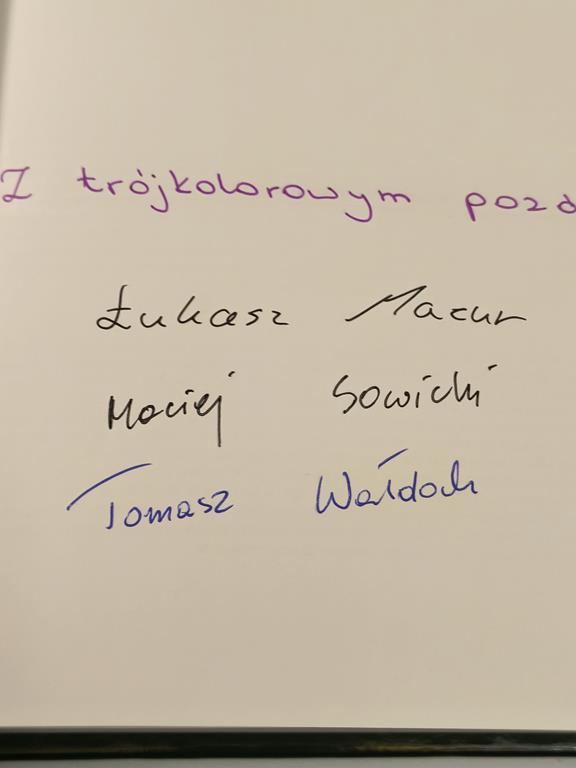 Z trójkolorowym pozd
Łukasz Mazur
Maciej Sowicki
Tomasz Wałdoch